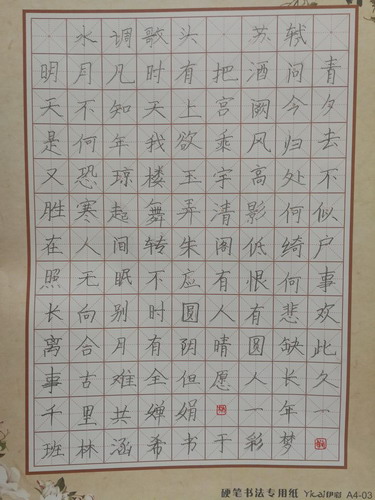 水调歌头 苏轼
明月几时有把酒问青
天不知天上宫阙今夕
是何年我欲乘风归去
又恐琼楼玉宇高处不
胜寒起舞弄清影何似
在人间转朱阁低绮户
照无眠不应有恨何事
长向别时圆人有悲欢
离合月有阴晴圆缺此
事古难全但愿人长久
千里共婵娟 一年一
班林涵希书于彩梦
硬笔书法专用纸 Yicai伊彩 A4-03